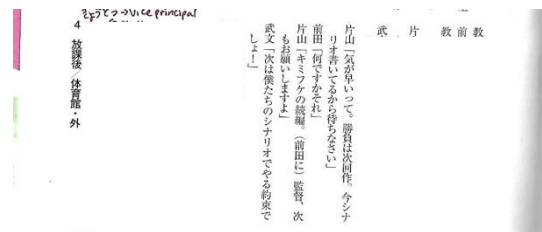 教
前
教
片
武
片山「気が早いって。勝負は次回作。今シナ
リオ書いてるから待ちなさい」
前田「何ですかそれ」
片山「キミフケの続編。（前田に）監督、次
もお願いしますよ」
武文「次は僕たちのシナリオでやる約束で
しょ！」
きょうとう→vice principal
4 放課後／体育館・外